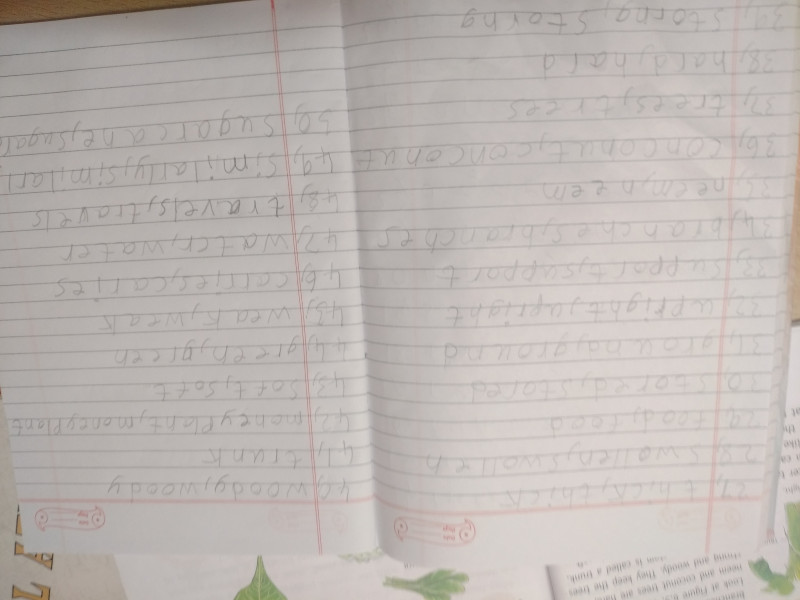 27, thick, thick
28, swollen, swollen
29, food, food
30, stored, stored
31, ground, ground
32, upright, upright
33, support, support
34, branches, branches
35, neem, neem
36, conconut, conconut
37, trees, trees
38, hard, hard
39, storng, storng
40, woody, woody
41, trunk
42, moneyplant, moneyplant
43, soft, soft
44, green, green
45, weak, weak
46, carries, caries
47, water, water
48, travels, travels
49, similarly, similarl
50, sugarcane, sugar
Look at Figure
neem and coconut trees are
strong and woody. They keep the trees
is called a trunk.